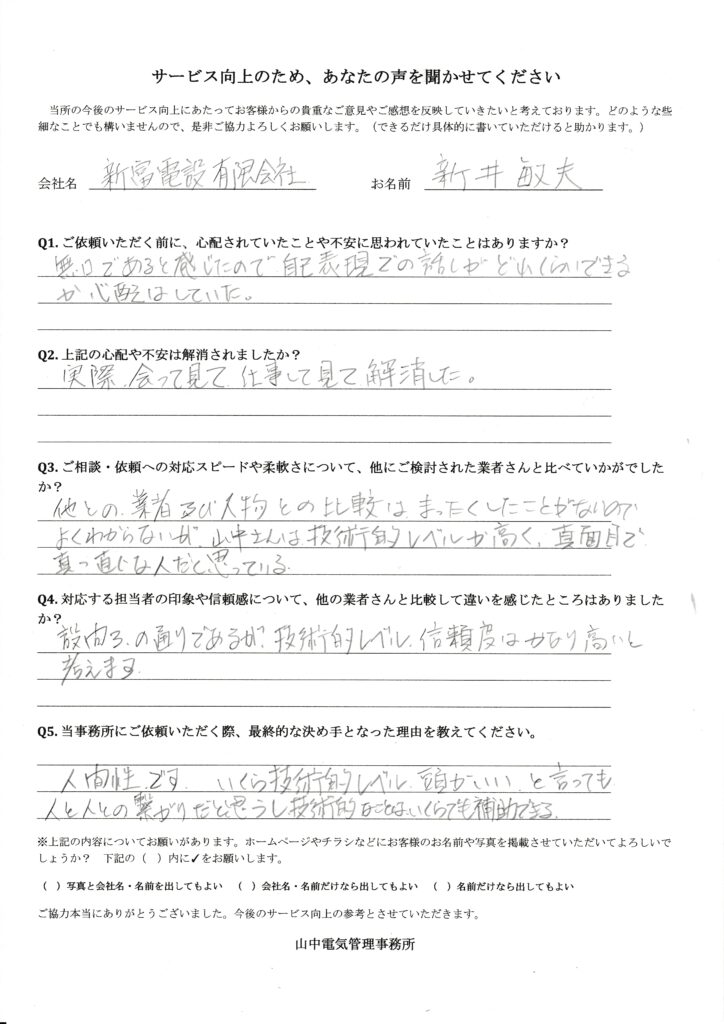 サービス向上のため、あなたの声を聞かせてください
当所の今後のサービス向上にあたってお客様からの貴重なご意見やご感想を反映していきたいと考えております。どのような些
細なことでも構いませんので、是非ご協力よろしくお願いします。（できるだけ具体的に書いていただけると助かります。）
会社名 新富電設有限会社 お名前 新井敏夫
Q1. ご依頼いただく前に、心配されていたことや不安に思われていたことはありますか？
無口であると感じたので自己表現での話しがどれくらいできる
か心配はしていた。
Q2. 上記の心配や不安は解消されましたか？
実際、会って見て、仕事して見て解消した。
Q3. ご相談・依頼への対応スピードや柔軟さについて、他にご検討された業者さんと比べていかがでした
か？
他との業者及び人物との比較はまったくしたことがないので
よくわからないが、山中さんは技術的レベルが高く、真面目で
真っ直ぐな人だと思っている
Q4. 対応する担当者の印象や信頼感について、他の業者さんと比較して違いを感じたところはありました
か？
設問3.の通りであるが、技術的レベル、信頼度はかなり高いと
考えます
Q5. 当事務所にご依頼いただく際、最終的な決め手となった理由を教えてください。
人間性です いくら技術的レベル、頭がいい、と言っても
人と人との繋がりだと思うし技術的なことはいくらでも補助できる。
※上記の内容についてお願いがあります。ホームページやチラシなどにお客様のお名前や写真を掲載させていただいてよろしいで
しょうか？ 下記の（ ）内に✓をお願いします。
（ ）写真と会社名・名前を出してもよい （ ）会社名・名前だけなら出してもよい （ ）名前だけなら出してもよい
ご協力本当にありがとうございました。今後のサービス向上の参考とさせていただきます。
山中電気管理事務所